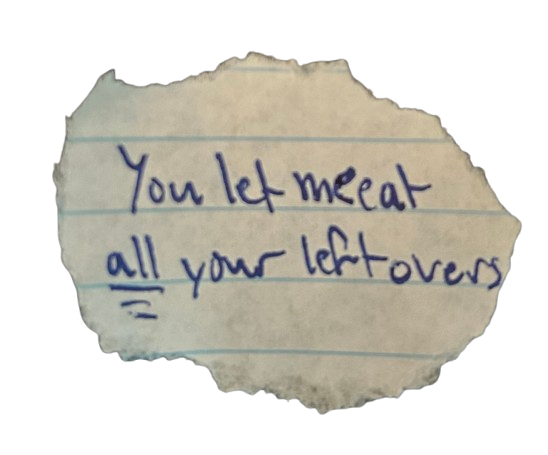 You let me eat
all your leftovers